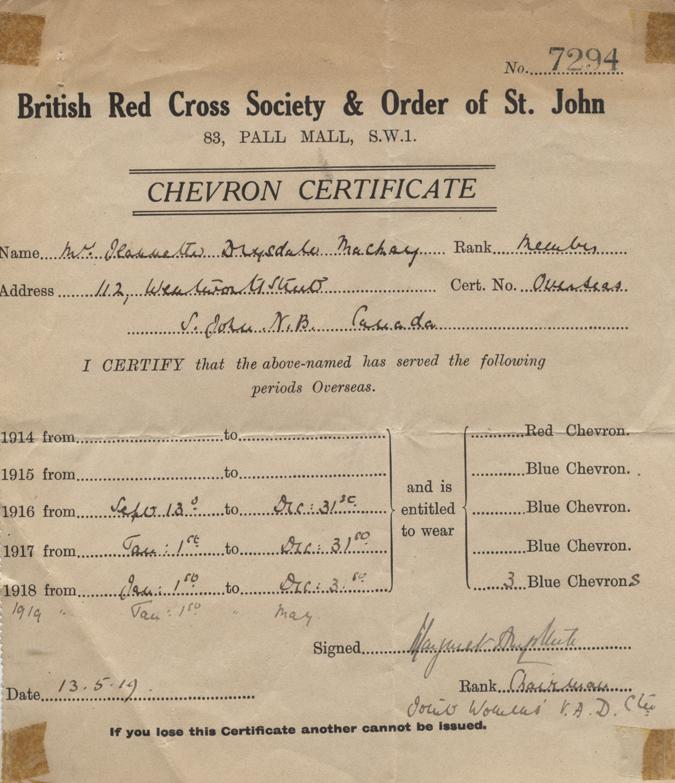 No. 7294
British Red Cross Society & Order of St. John
83, PALL MALL, S.W.1.
CHEVRON CERTIFICATE
Name Jeannette Drysdale Mackay Rank Member
Address 112, Wentworth Street Cert. No. Overseas
S. John N.B. Canada
I CERTIFY that the above-named has served the following
periods Overseas.
1914 from to Red Chevron.
1915 from to Blue Chevron.
and is
1916 from Sept 13 to Dec: 31st entitled Blue Chevron.
to wear
1917 from Jan: 1st to Dec: 31st Blue Chevron.
1918 from Jan: 1st to Dec: 3 st 3 Blue Chevrons
1919 " Jan: 1st " May
Signed Margaret
Date 13.5.19. Rank Chairman
Joint Womens' V.A.D. Ctee
If you lose this Certificate another cannot be issued.